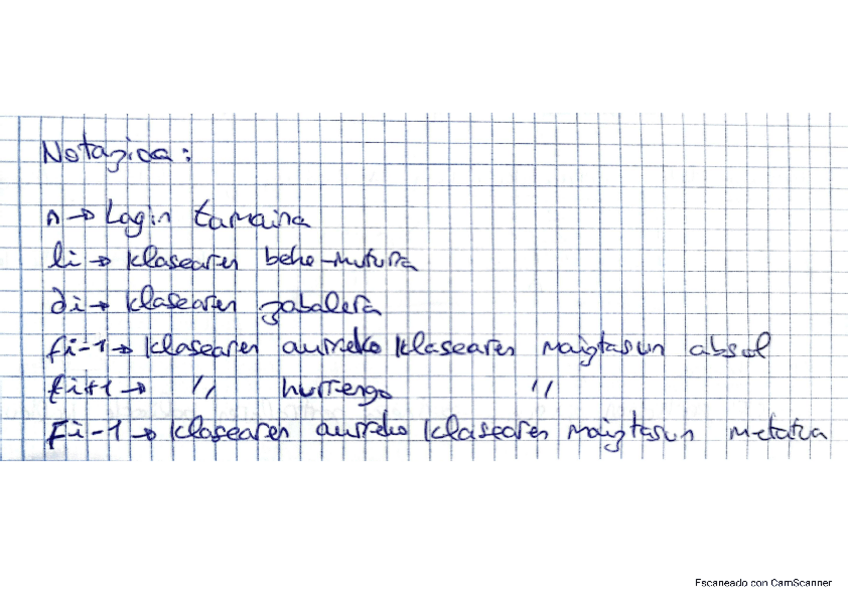 Notazioa:
n → Lagin tamaina
li → klasearen behe-muturra
di → klasearen zabalera
fi-1 → klasearen aurreko klasearen maiztasun absol
fi+1 → " hurrengo "
Fi-1 → klasearen aurreko klasearen maiztasun metatua
Escaneado con CamScanner